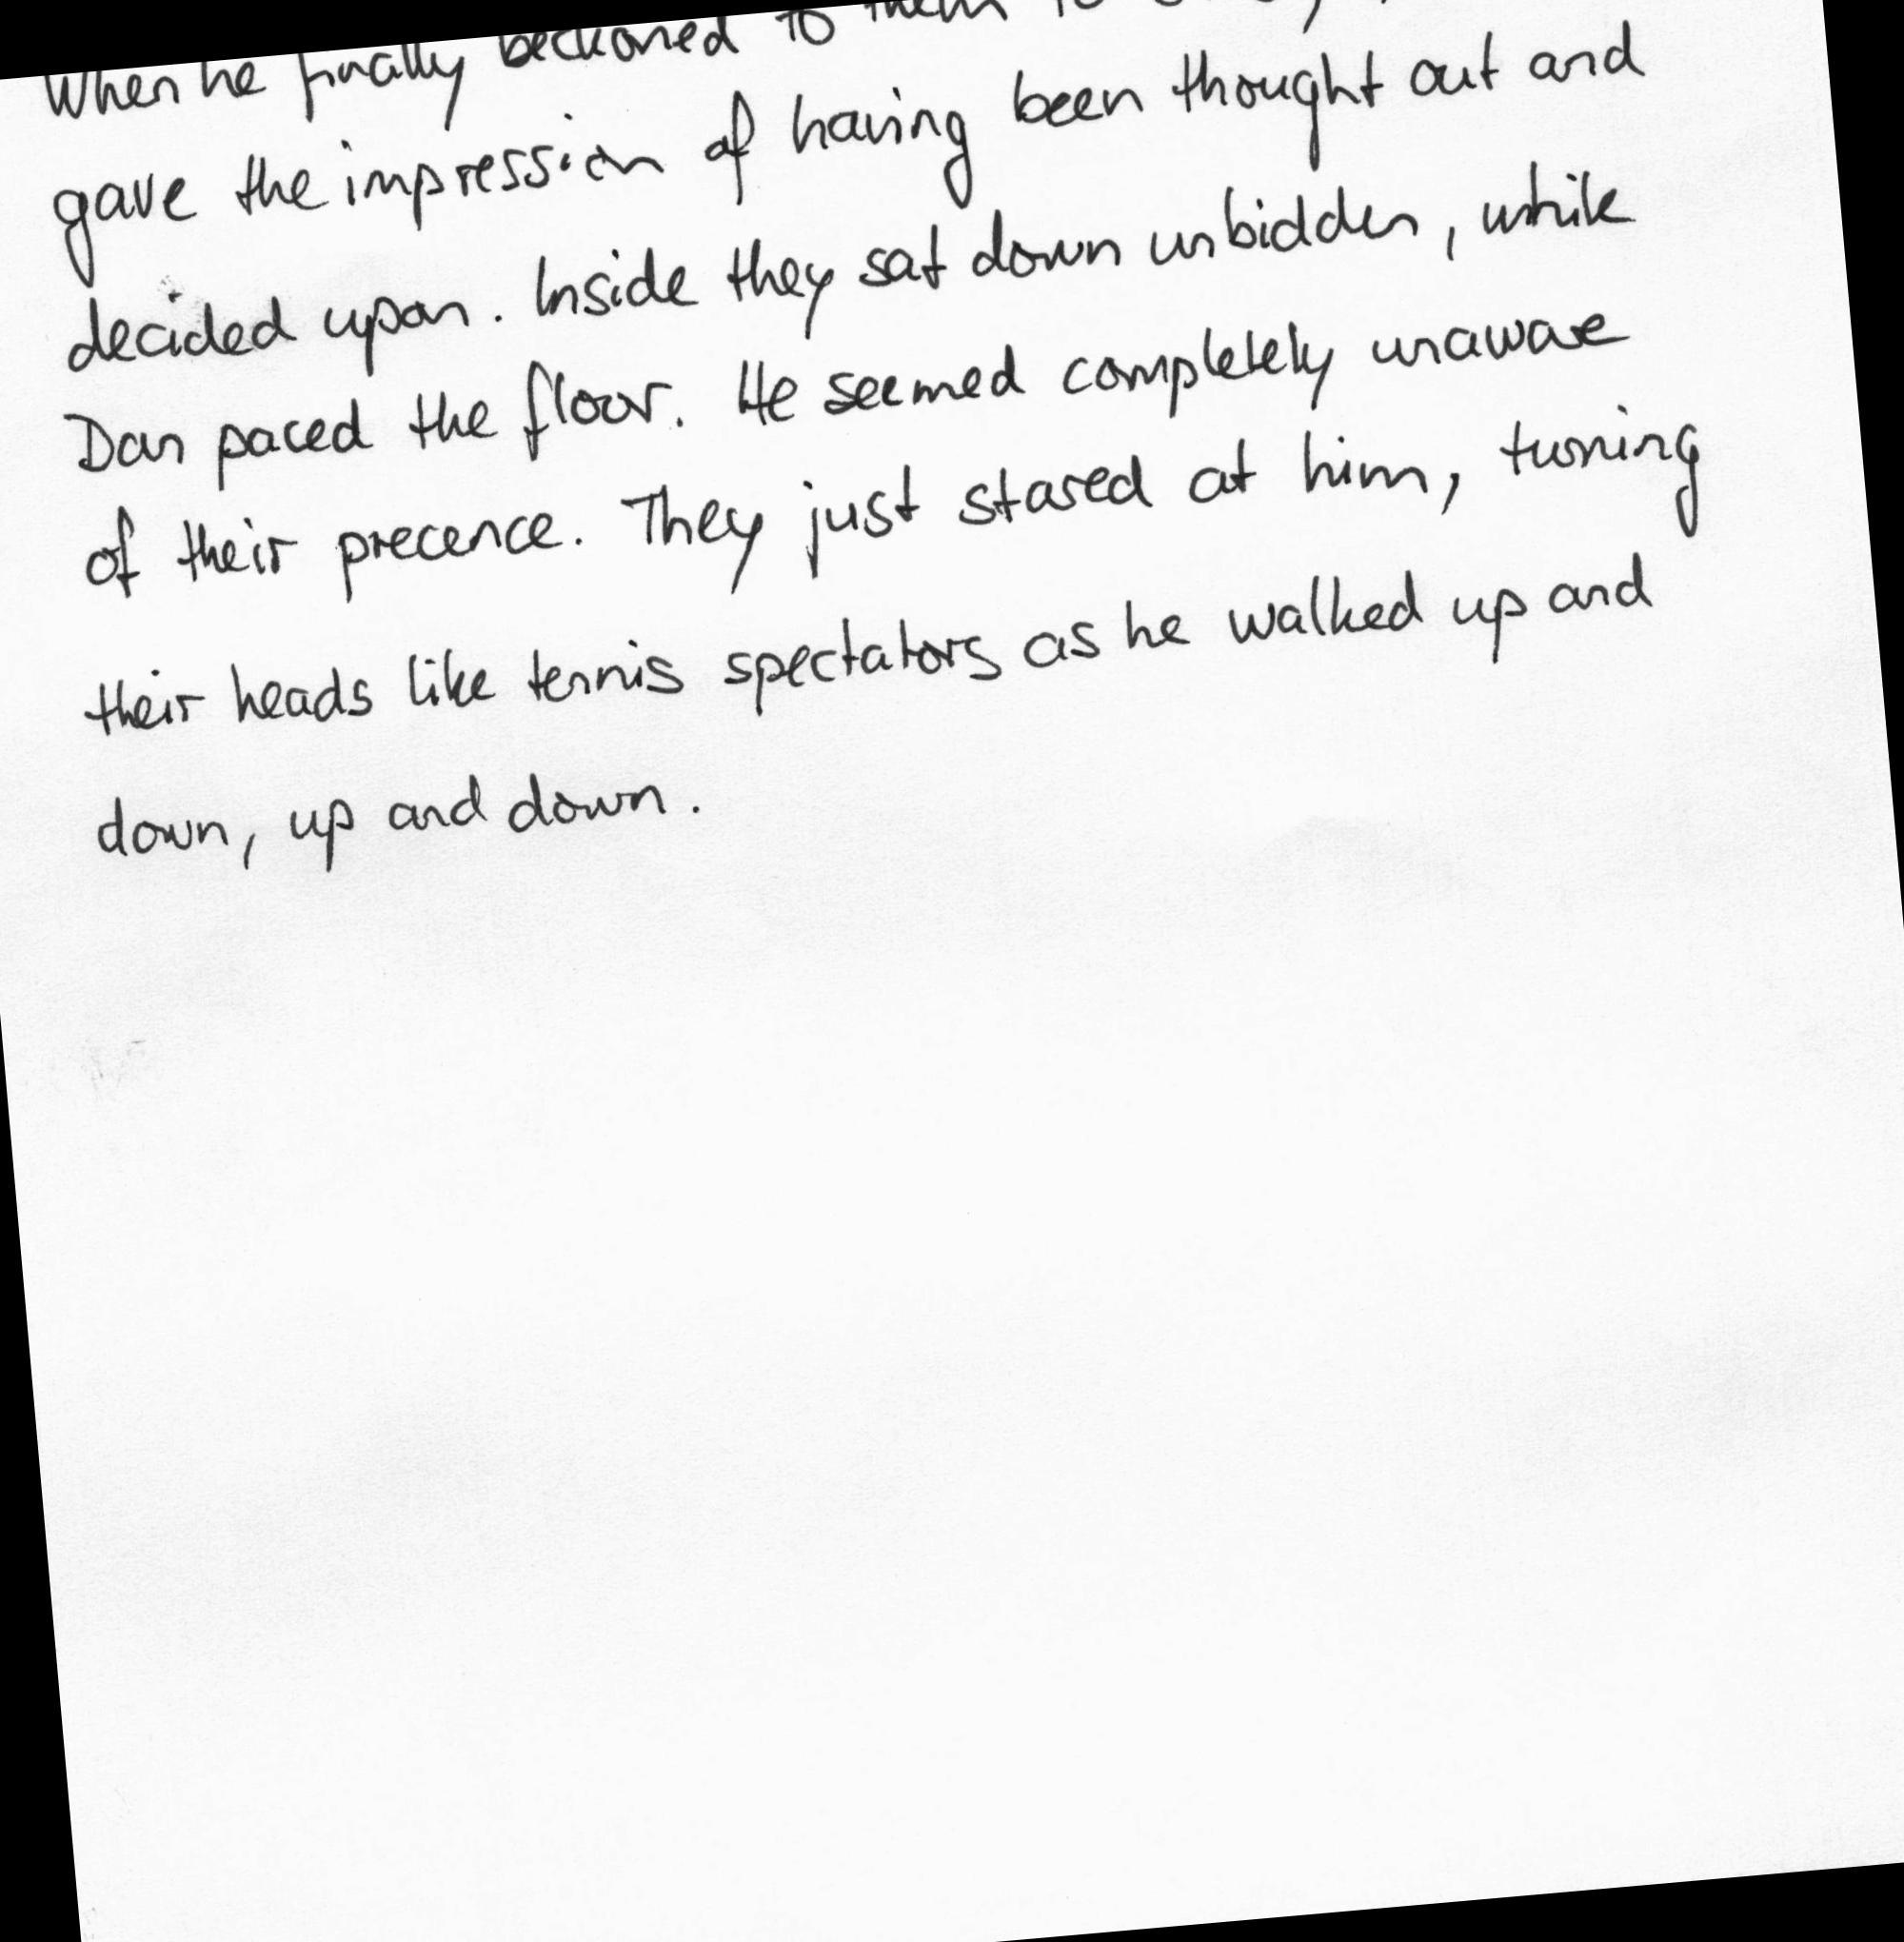 When he finally beckoned to them to
gave the impression of having been thought out and
decided upon. Inside they sat down unbidden, while
Dan paced the floor. He seemed completely unaware
of their precence. They just stared at him, turning
their heads like tennis spectators as he walked up and
down, up and down.